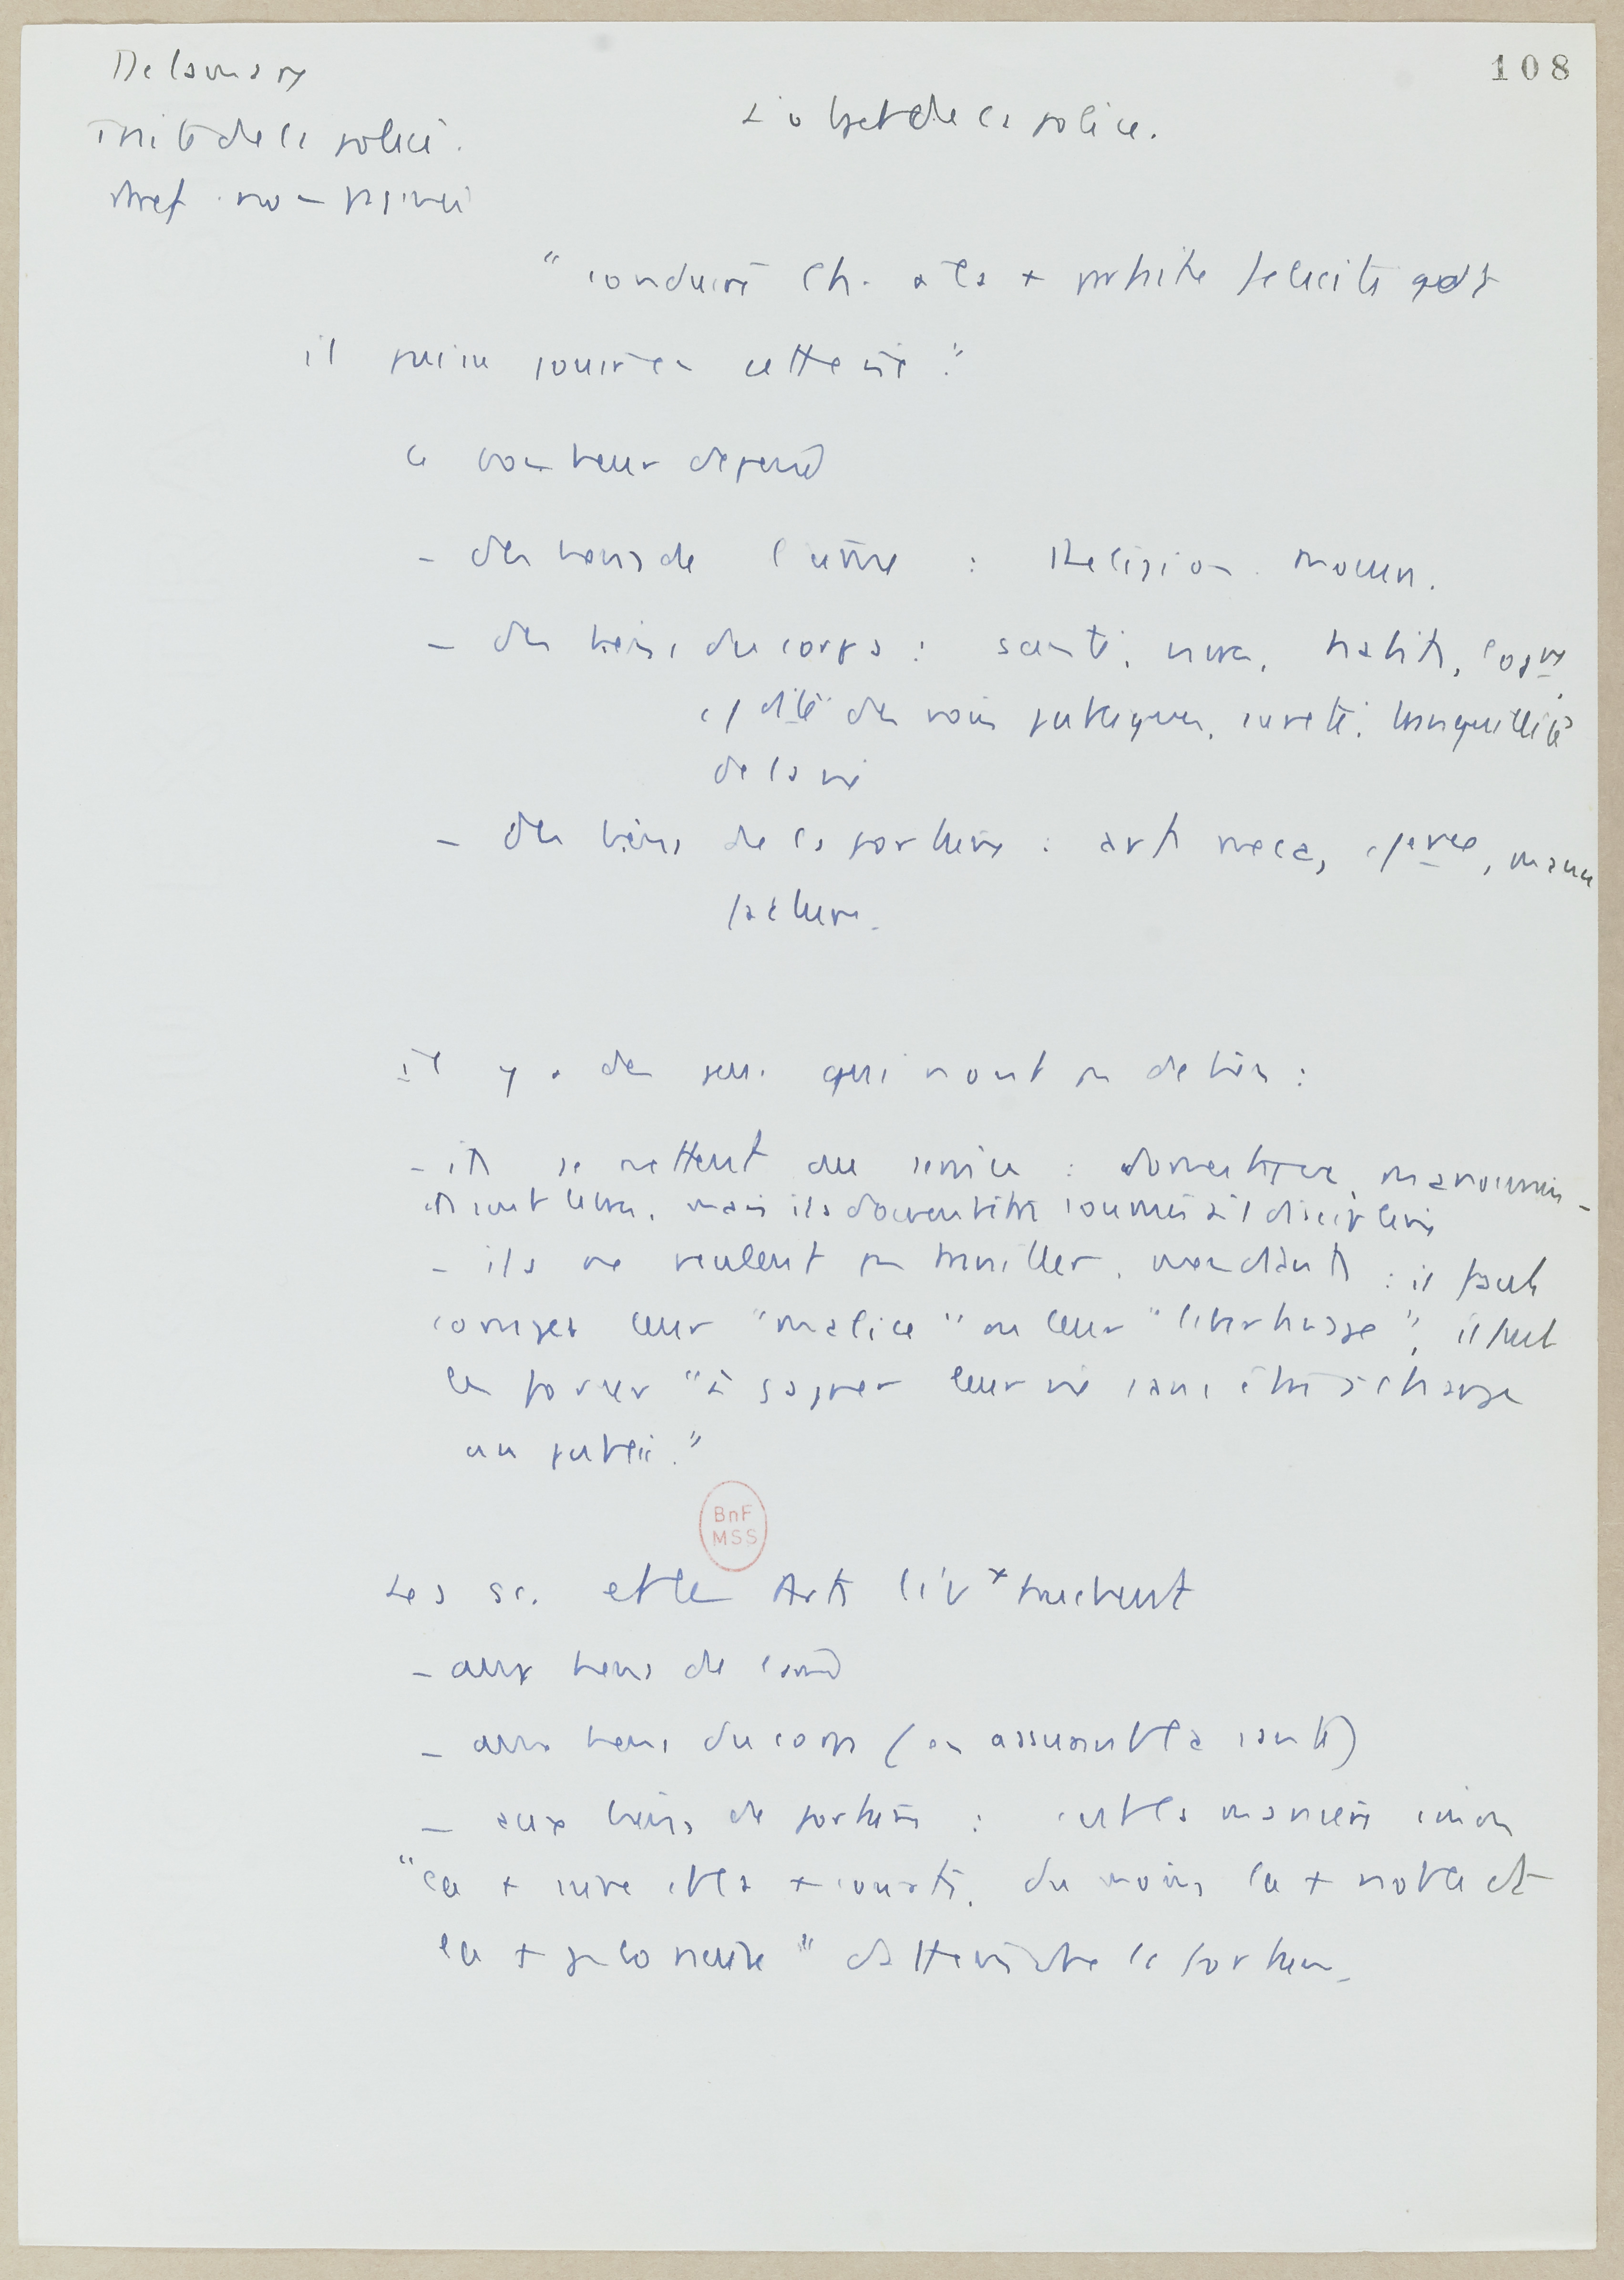 108
Delamare
Traité de la police.
Pref. non paginée
L'objet de la police.
"conduire l'h. à la + parfaite félicité dont
il puisse jouir en cette vie."
Ce bonheur dépend
- des biens de l'âme : Religion. Moeurs.
- des biens du corps : santé, vivres, habits, logt,
des voies publiques, sureté, tranquillité
de la vie
- des biens de la fortune : arts méca, manu
factures.
il y a des gens qui n'ont pas de biens :
- ils se mettent au service : domestiques, manouvriers -
ils sont libres, mais ils doivent être soumis à 1 discipline
- ils ne veulent pas travailler, mendiants : il faut
corriger leur "malice" ou leur "libertinage", il faut
les forcer "à gagner leur vie sans être à charge
au public."
BnF
MSS
Les sc. et les Arts libx touchent
- aux biens de l'âme
- aux biens du corps (en assurant la santé)
- aux biens de fortune : c'est la manière sinon
"la + sure et la + courte, du moins la + noble et
la + glorieuse" d'atteindre la fortune.